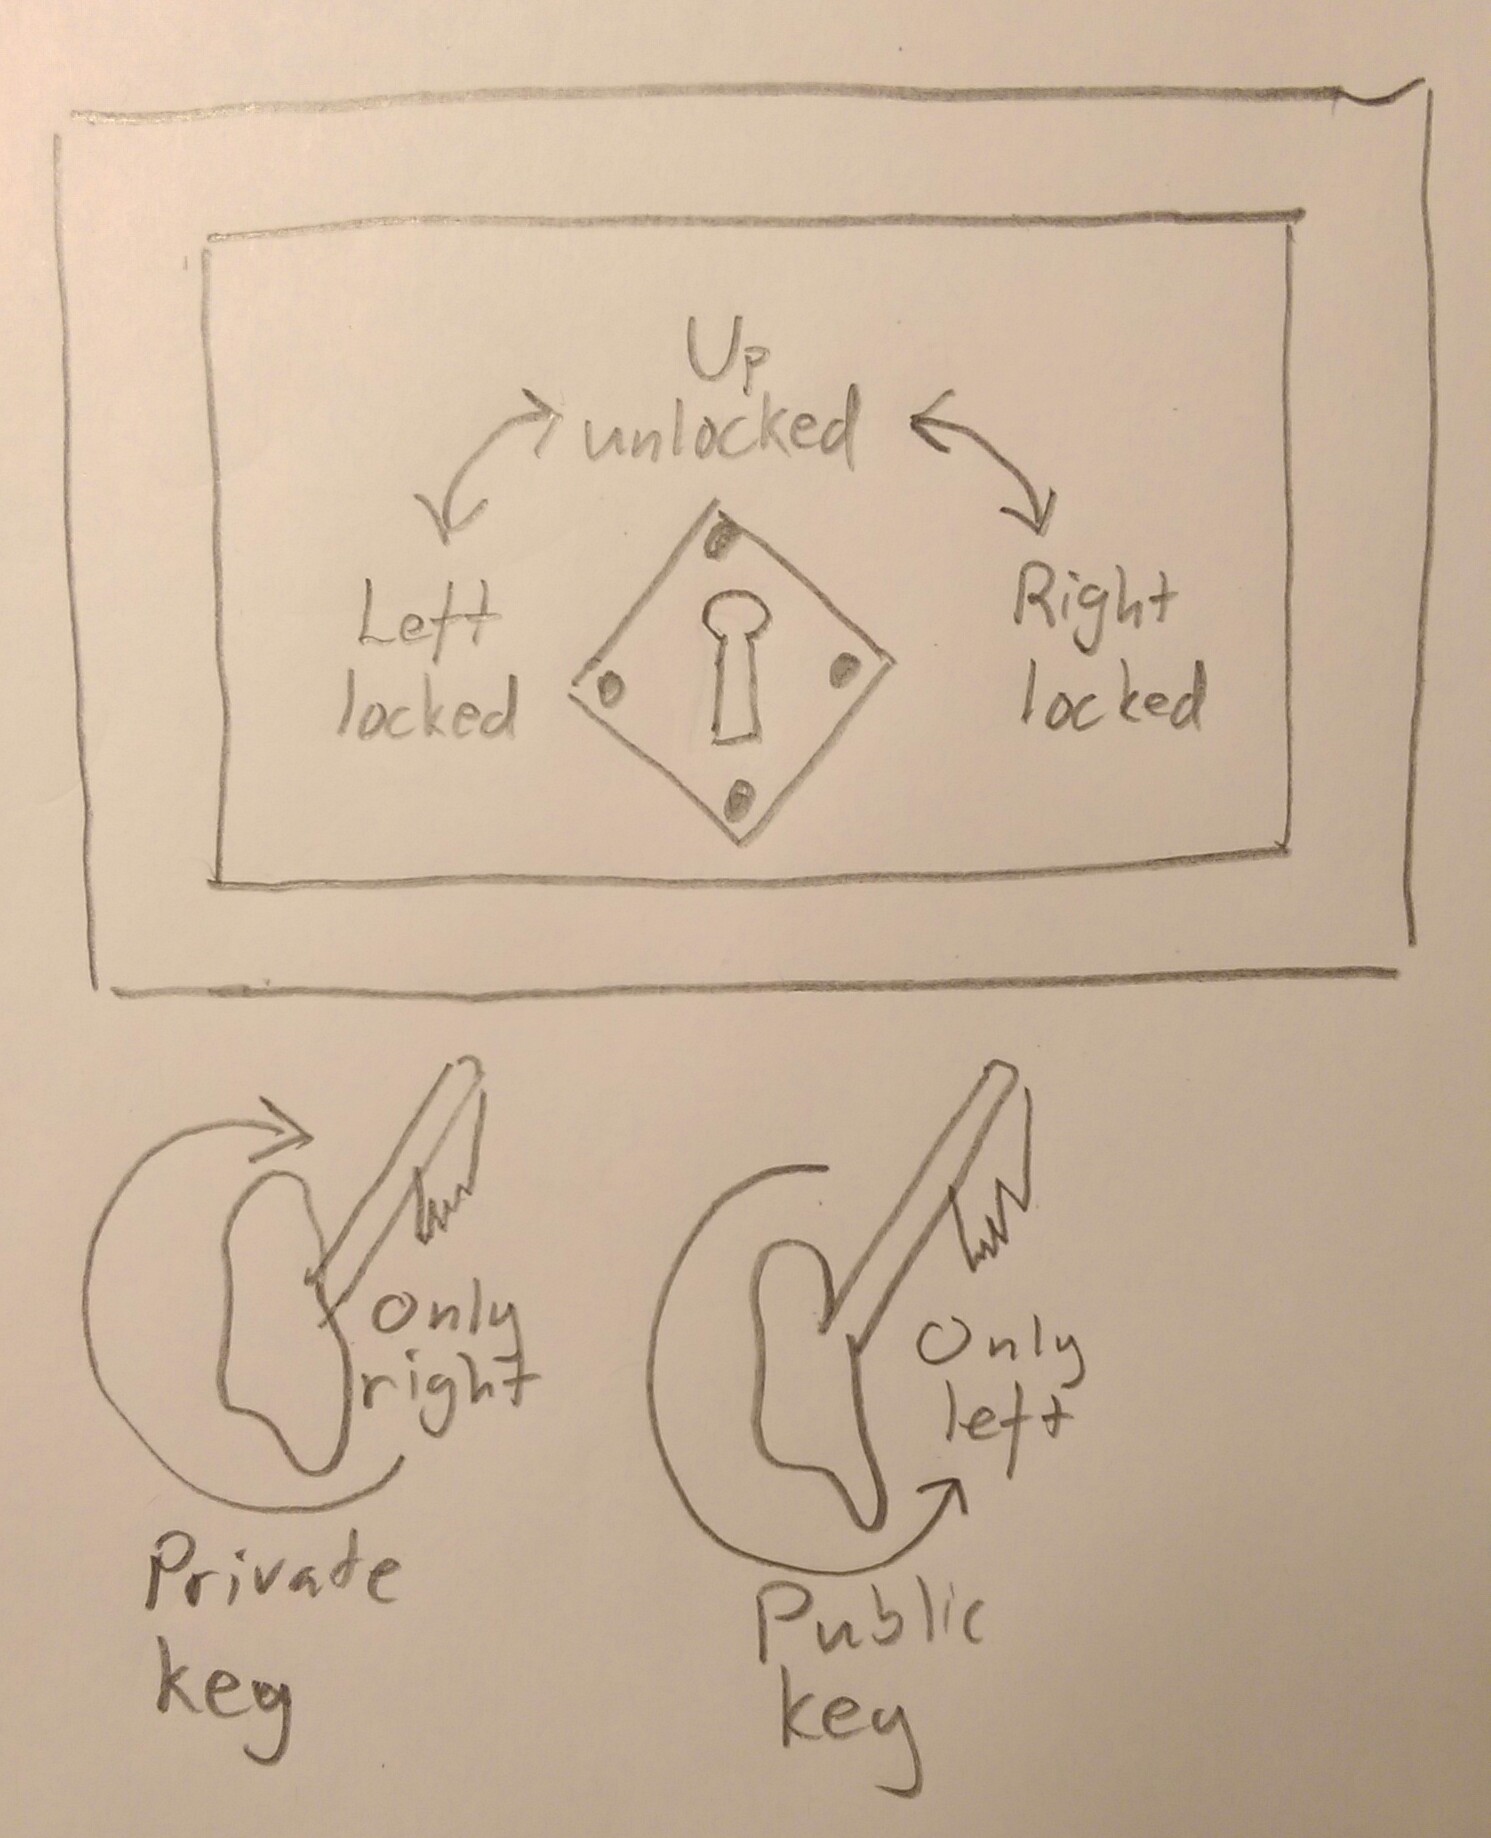 Up
unlocked
Left
locked
Right
locked
Only
right
Private
key
Only
left
Public
key